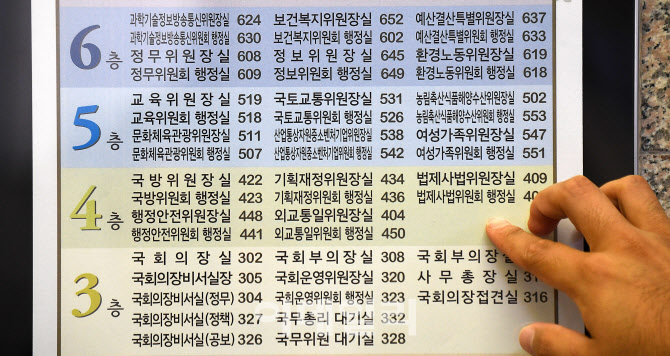 6층
과학기술정보방송통신위원장실 624 보건복지위원장실 652 예산결산특별위원장실 637
과학기술정보방송통신위원회 행정실 630 보건복지위원회 행정실 602 예산결산특별위원회 행정실 633
정무위원장실 608 정보위원장실 645 환경노동위원장실 619
정무위원회 행정실 609 정보위원회 행정실 649 환경노동위원회 행정실 618
5층
교육위원장실 519 국토교통위원장실 531 농림축산식품해양수산위원장실 502
교육위원회 행정실 518 국토교통위원회 행정실 526 농림축산식품해양수산위원회 행정실 553
문화체육관광위원장실 511 산업통상자원중소벤처기업위원장실 538 여성가족위원장실 547
문화체육관광위원회 행정실 507 산업통상자원중소벤처기업위원회 행정실 542 여성가족위원회 행정실 551
4층
국방위원장실 422 기획재정위원장실 434 법제사법위원장실 409
국방위원회 행정실 423 기획재정위원회 행정실 436 법제사법위원회 행정실
행정안전위원장실 448 외교통일위원장실 404
행정안전위원회 행정실 441 외교통일위원회 행정실 450
3층
국회의장실 302 국회부의장실 308 국회부의장실
국회의장비서실장 305 국회운영위원장실 320 사무총장실
국회의장비서실(정무) 304 국회운영위원회 행정실 323 국회의장접견실 316
국회의장비서실(정책) 327 국무총리 대기실 332
국회의장비서실(공보) 326 국무위원 대기실 328